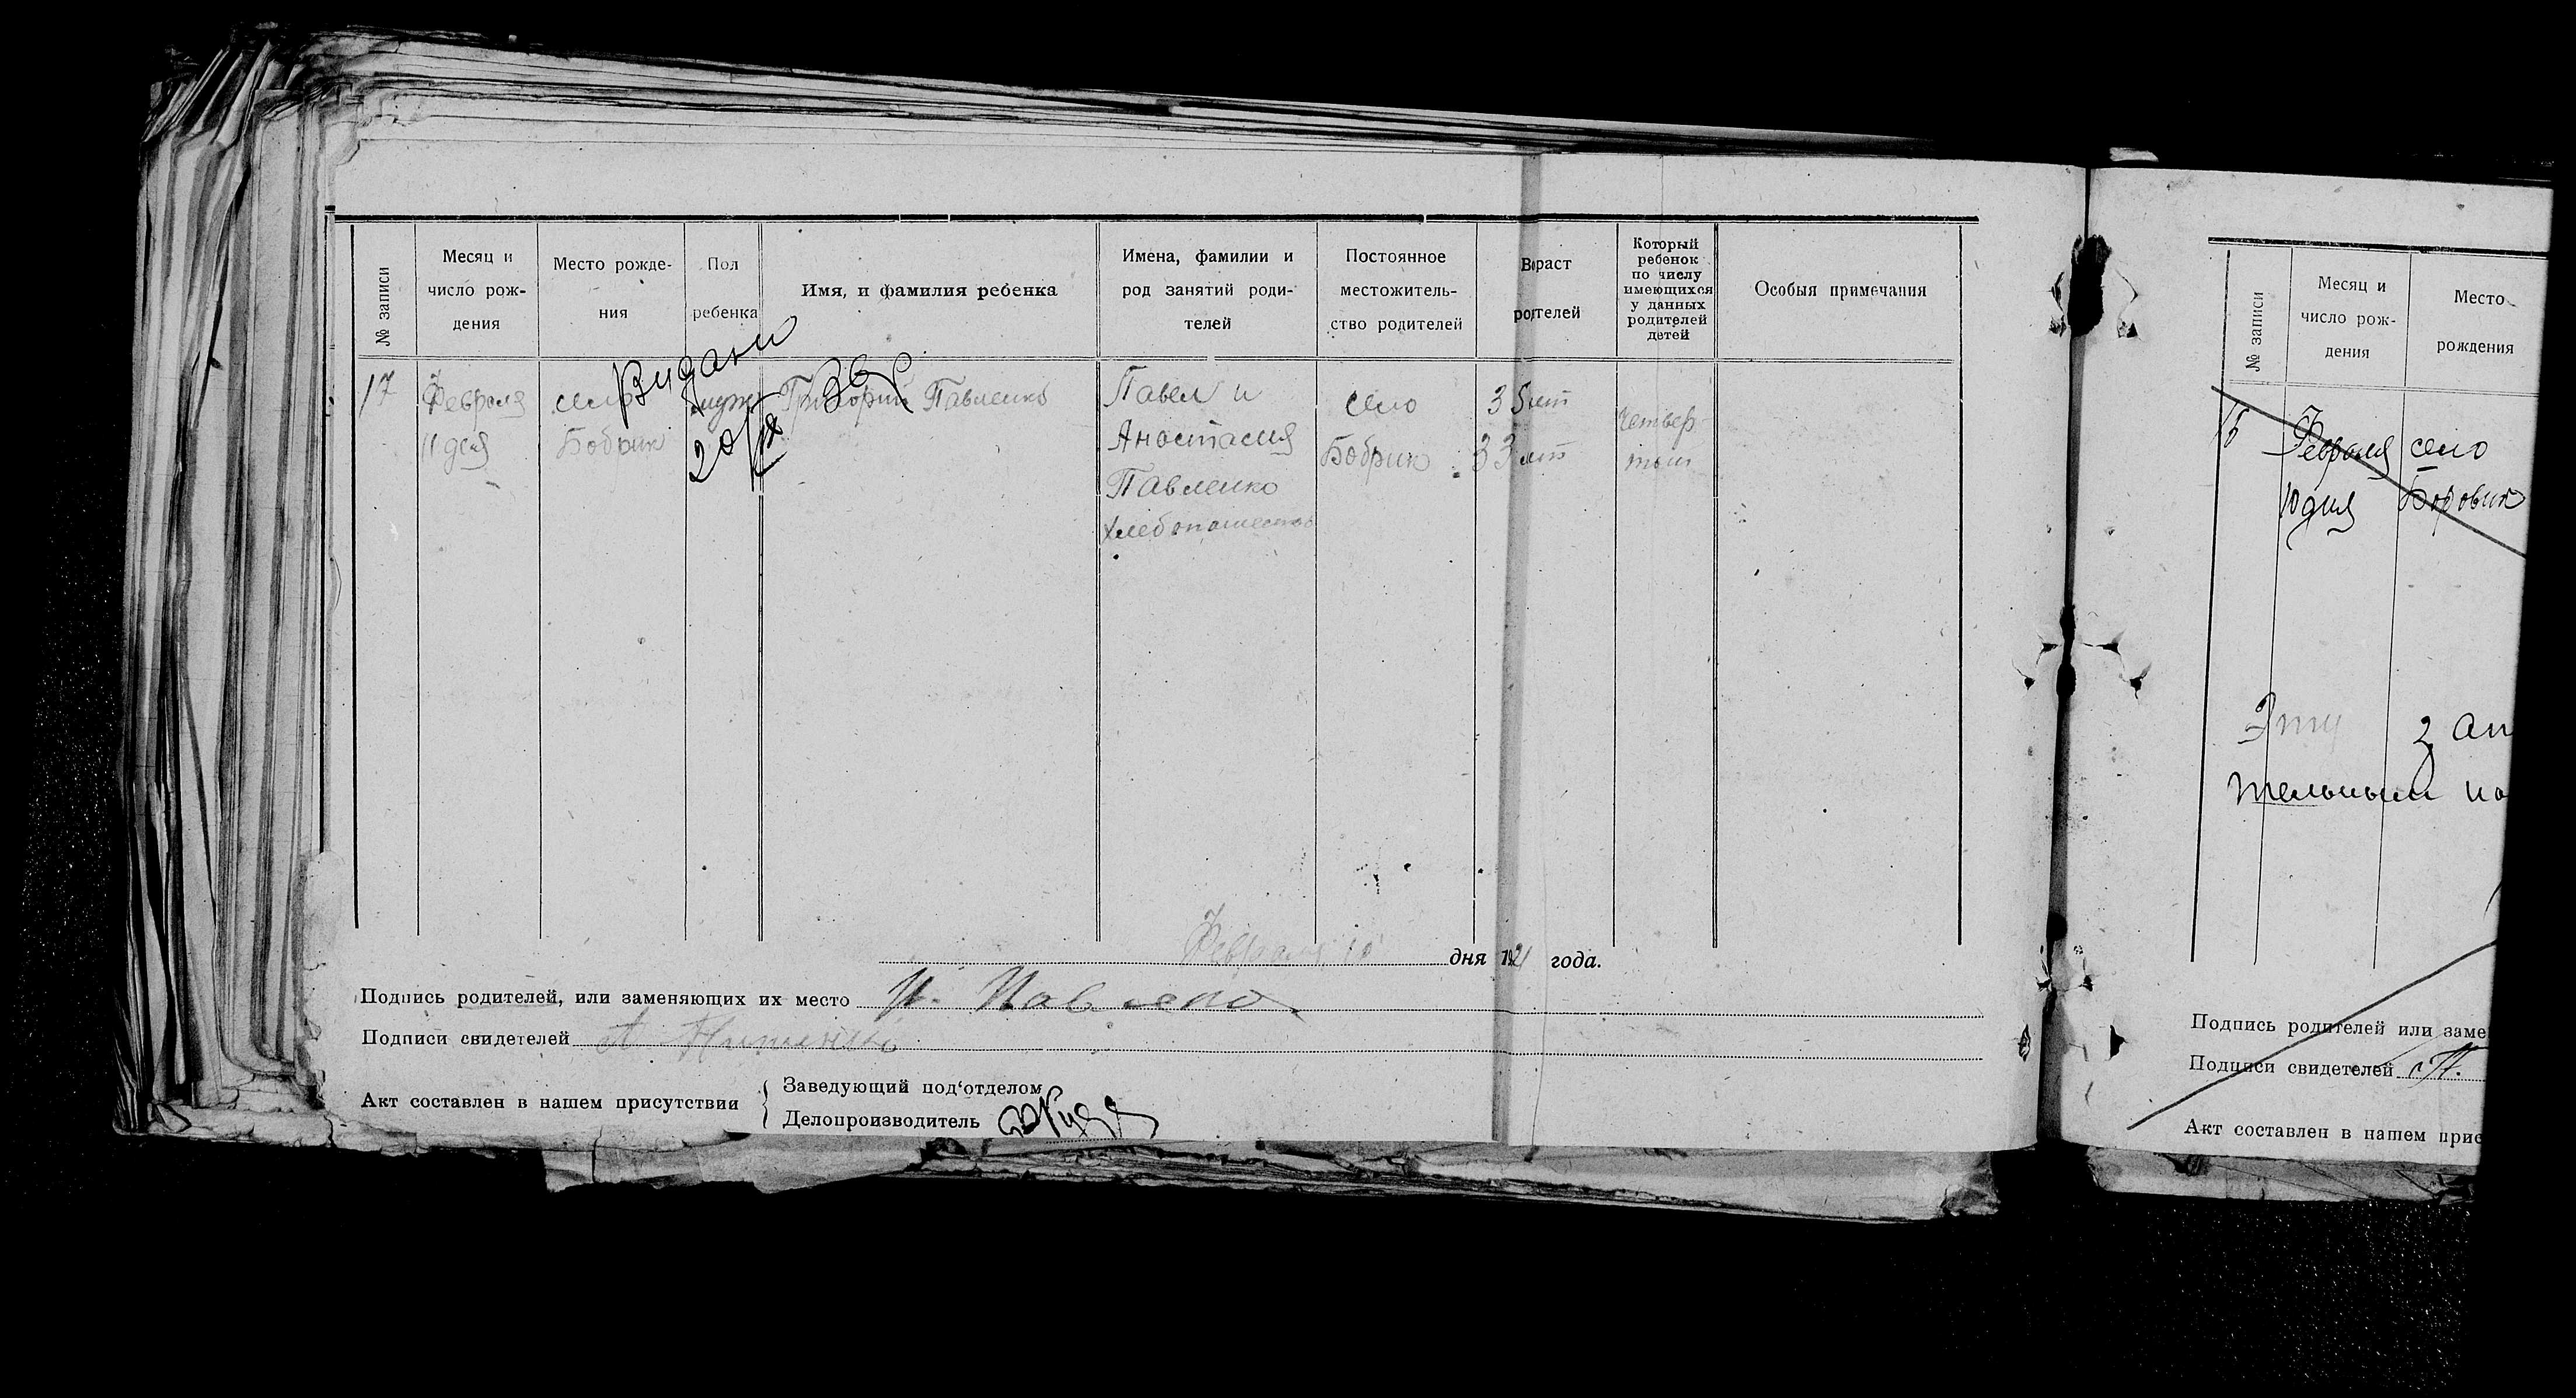 № записи
Месяц и
число рож-
дения
Место рожде-
ния
Пол
ребенка
Имя, и фамилия ребенка
Имена, фамилии и
род занятий роди-
телей
Постоянное
местожитель-
ство родителей
Возраст
родителей
Который
ребенок
по числу
имеющихся
у данных
родителей
детей
Особыя примечания
Видани
20/IX
17
Февраля
11 дня
село
Бобрик
муж
Григорий Павленко
Павел и
Анастасия
Павленко
хлебопашество
село
Бобрик
35 лет
33 лет
четвер-
тый
Февраля 10 дня 1921 года.
Подпись родителей, или заменяющих их место П. Павленко
Подписи свидетелей А
Акт составлен в нашем присутствии
Заведующий под‘отделом
Делопроизводитель
№ записи
Месяц и
число рож-
дения
Место
рождения
16
Февраля
10 дня
село
Боровик
Эту зап
тельным по
Подпись родителей или заме
Подписи свидетелей
Акт составлен в нашем прис